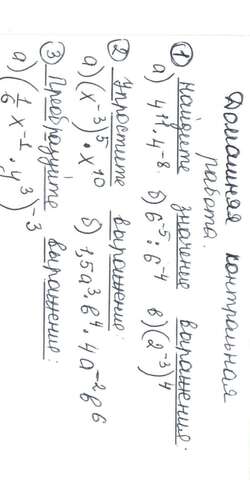 Домашняя контрольная
работа.
① Найдите значение выражения:
а) 4¹¹ · 4⁻⁸ б) 6⁻⁵ : 6⁻⁴ в) (2⁻³)⁴
② Упростите выражение:
а) (x⁻³)⁵ · x¹⁰ б) 1,5a³b⁴ · 4a⁻²b⁶
③ Преобразуйте выражение:
а) (1/6 x⁻¹ · y³)⁻³